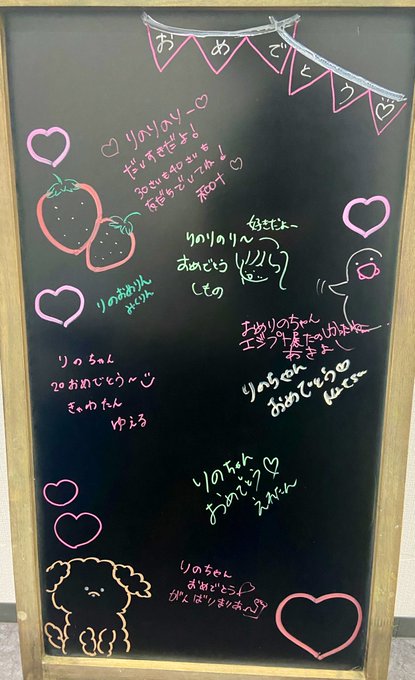 おめでとう♡
♡りのりのりー♡
だいすきだよ!
30さいも40さいも
友だちでいてね!♡
好きだよー
りのりのり〜
おめでとう
しもの
りのおめりん
みくりん
おめりのちゃん
エジプト展たのしかったねー
あきよ
りのちゃん
20おめでとう〜
きゃわたん
ゆえる
りのちゃん
おめでとう♡
りのちゃん
おめでとう♡
えれたん
りのちゃん
おめでとう♡
がんばりまりお〜